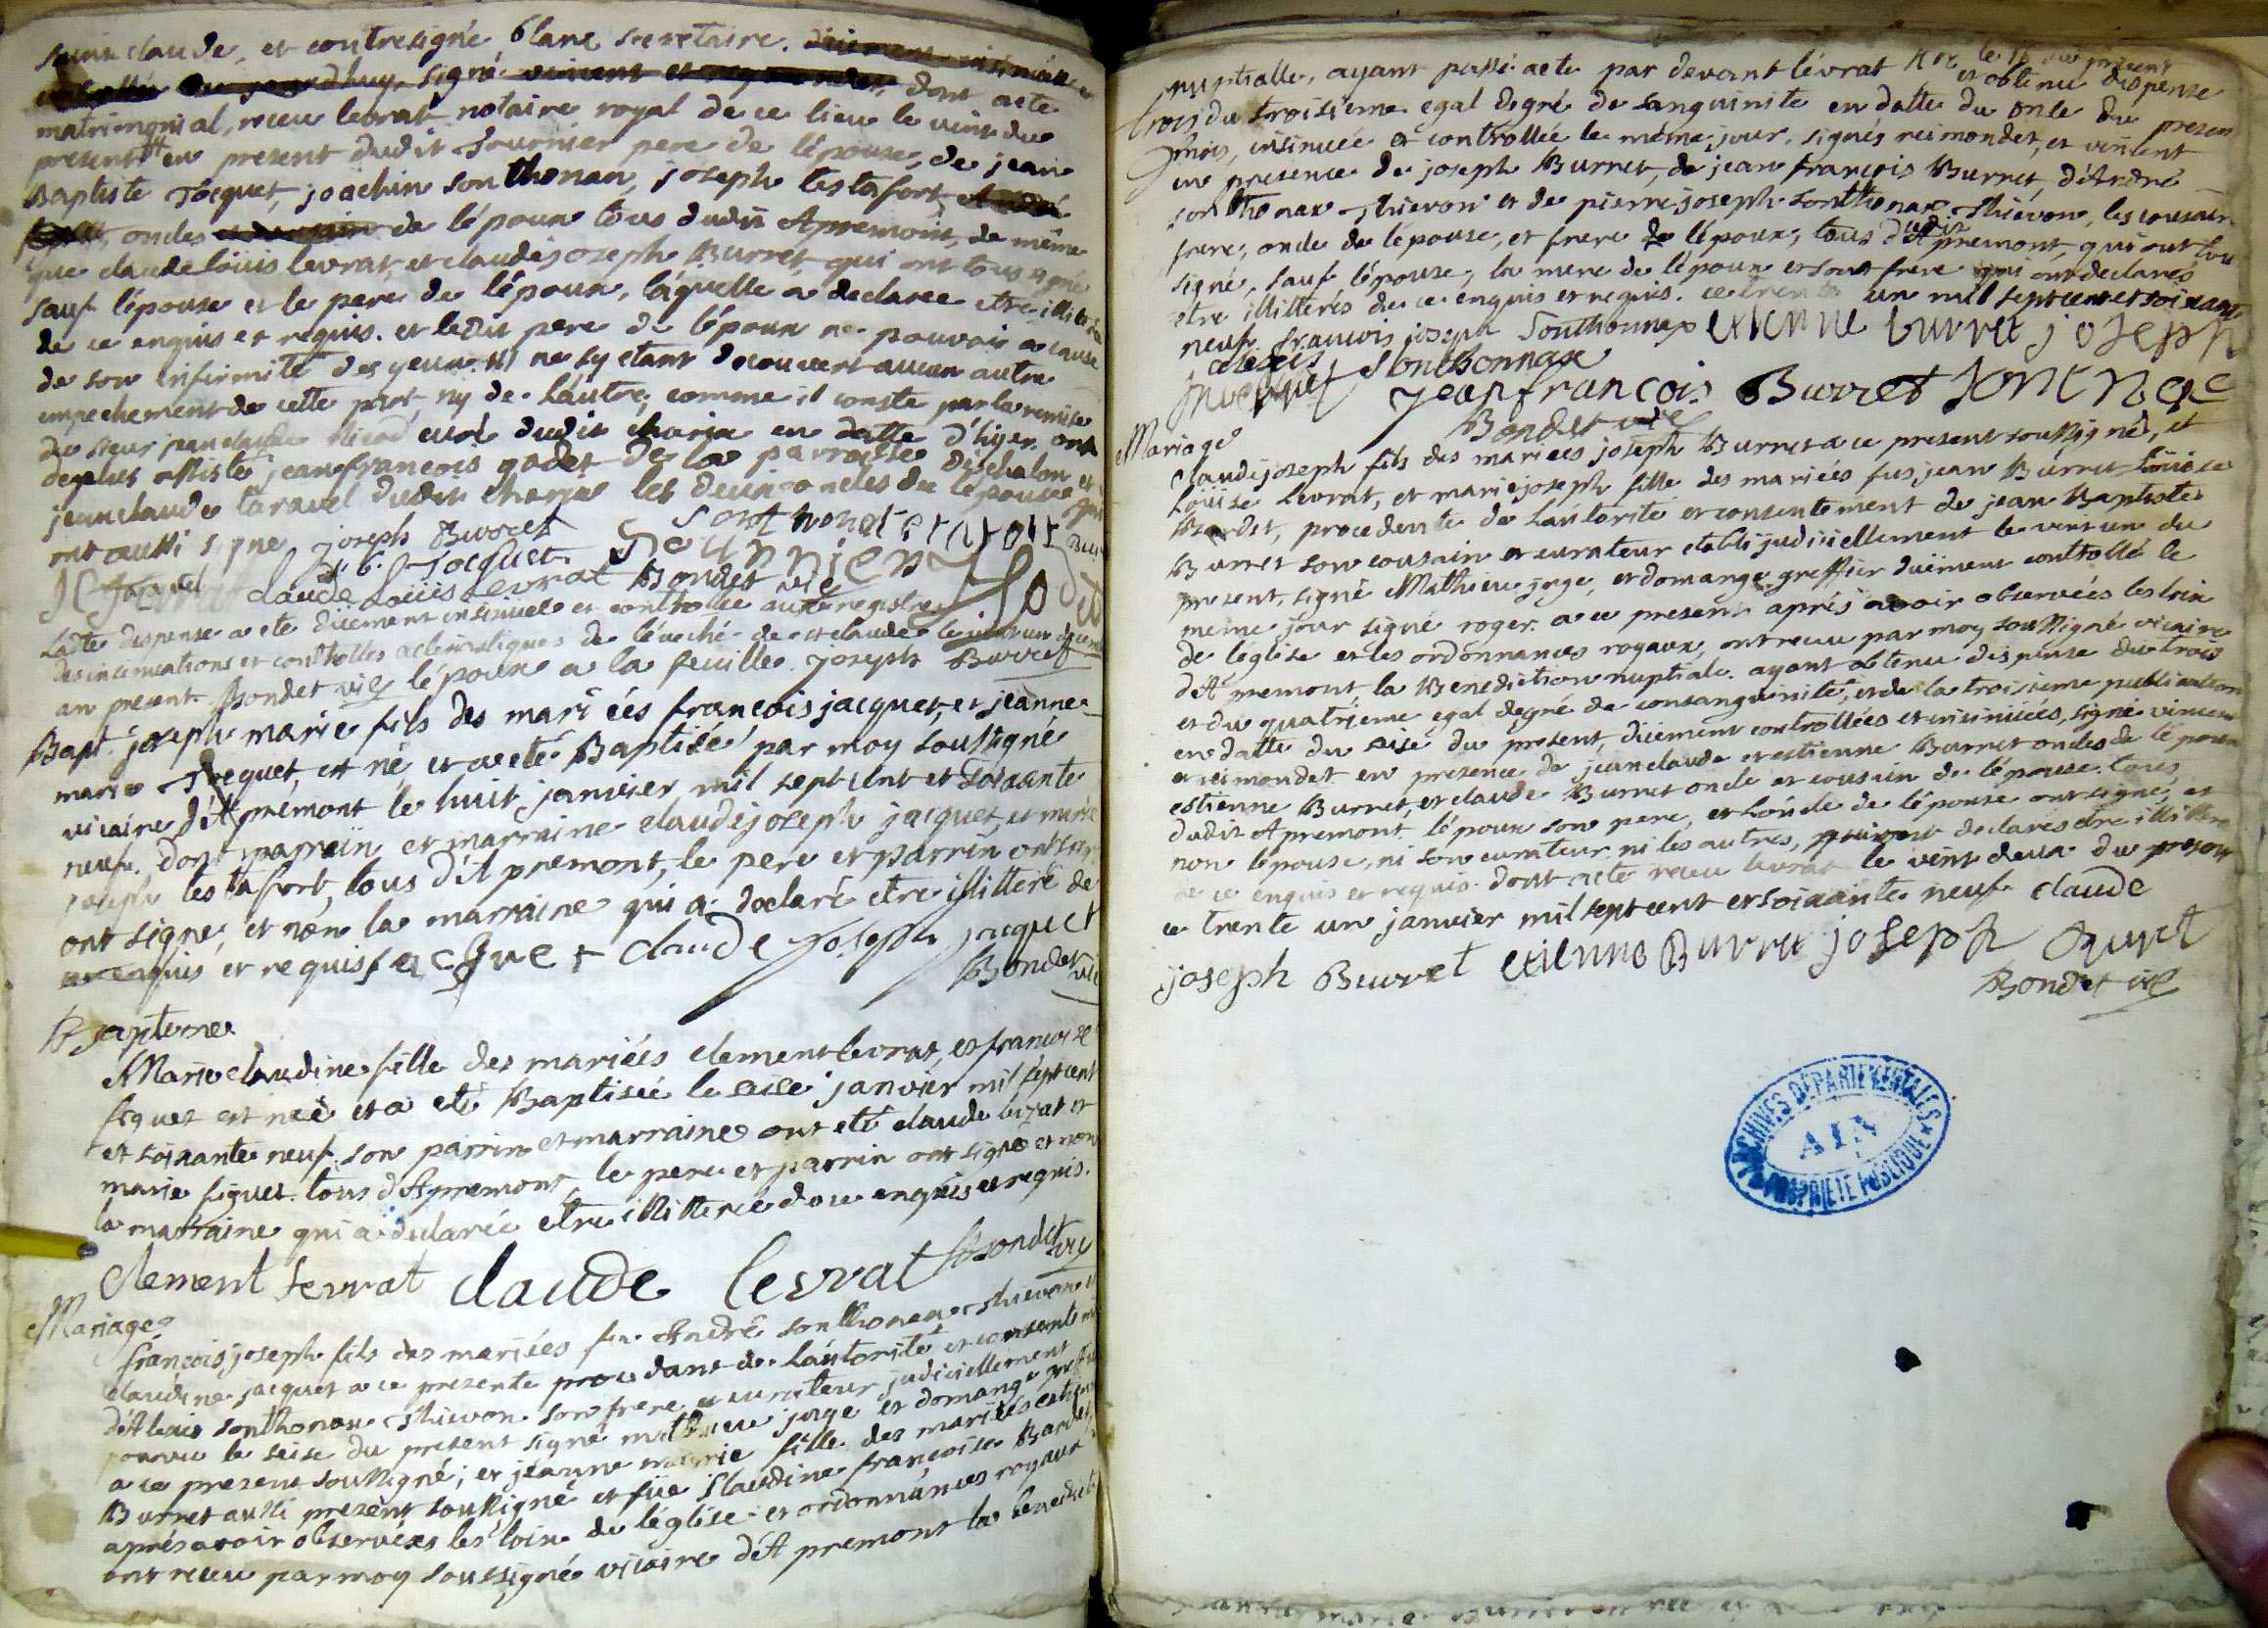 saint claude, et contresigné, blanc secretaire.
dont acte
matrimonial, receu levrat notaire royal de ce lieu le vint du
present et en present dudit fournier pere de lépouse, de jean
Baptiste Jacquet, joachin sonthonax, joseph testafort
oncles de lépoux tous dudit Apremont, de même
que claude louis levrat, et claudejoseph Burret, qui ont tous signé
sauf lépouse et le pere de lépoux, laquelle a declaree etre illiterée
de ce enquis et requis. et ledit pere de lépoux ne pouvoir a cause
de son infirmité des yeux. ne sy etant decouvert aucun autre
empechement de cette part, ny de lautre, comme il conste par la remise
du sieur jean claude curé dudit charix en datte d'hyer. ont
deplus assisté jean francois godet de la parroisse déchalon et
jean claude taravel dudit charix les deux oncles de lépouse qui
ont aussi signe joseph Burret sonthonax
J C taravel J. B. Jacquet fournier
claude Louis Levrat Bondet vic
Ladte dispense a ete düement insinuée et controllee aux registres
des insinuations et controlles eclesiastiques de léveché de st claude le vint un
an present Bondet vic lépoux a la feuille joseph Burret
Bapt. joseph marie fils des mariées francois jacquet, et jeanne
marie Jacquet, est né et a eté Baptisé par moy soussigné
vicaire d'Apremont le huit janvier mil sept cent et soixante
neuf. dont parrein et marraine claudejoseph jacquet, et marie
joseph testafort, tous d'Apremont, le pere et parrin ont
ont signé, et non la marraine qui a declaré etre illitteré de
ce enquis et requis jacquet claude joseph jacquet
Bondet vic
Bapteme
Marie claudine fille des mariées clement levrat, et francoise
figuet est neé et a eté Baptisée le seize janvier mil sept cent
et soixante neuf. son parrin et marraine ont eté claude levrat et
marie figuet. tous d'Apremont, le pere et parrin ont signé et non
la marraine qui a declarée etre illitterée de ce enquis et requis.
Clement Levrat claude levrat Bondet vic
Mariage
françois joseph fils des mariées feu André sonthonax thievon et
claudine jacquet a ce presente procedant de l'autorité et consentement
d'Alexis sonthonax thievon son frere et curateur judiciellement
pourvu le seise du present signé mathieu juge et domange greffier
a ce present soussigné; et jeanne marie fille des mariées estienne
Burret aussi present soussigné et füe Claudine françoise Bardet
aprés avoir observées les loix de léglise et ordonnances royaux
ont receu par moy soussigné vicaire d'Apremont la benediction
nuptialle, ayant passé acte par devant lévrat Nre le 16 du present
et obtenu dispense
trois du troisieme egal degré de sanguinité en datte du onse du present
mois, insinuée et controllée le même jour. signés reimondet, et vincent
en presence de joseph Burret, de jean françois Burret, d'André
sonthonax thievon et de pierre joseph sonthonax thiévon, les cousain
frere, oncle de lépouse, et frere de lépoux, tous dudit Apremont, qui ont tous
signé, sauf lépouse, la mere de lépoux et son frere qui ont declarés
etre illitterés de ce enquis et requis. ce trente un mil sept cent et soixante
neuf. françois joseph Sonthonnax etienne burret joseph
alexis Sonthonnax
jacquet jean francois Burret sontnax
Bondet vic
Mariage
Claudejoseph fils des mariees joseph Burret a ce present soussigné, et
Loüise Levrat, et mariejoseph fille des mariées fus jean Burret Loüise
Bardet, procedente de l'autorité et consentement de jean Baptiste
Burret son cousain et curateur etabli judiciellement le vint un du
present, signé Mathieu juge, et domange greffier düement controllé le
meme jour signé roger. a ce present aprés avoir observées les loix
de léglise et les ordonnances royaux, ont receu par moy soussigné vicaire
d'Apremont la Benediction nuptiale. ayant obtenu dispense du trois
et du quatrieme egal degré de consanguinité, et de la troisieme publication
en datte du seise du present, düement controllées et insinuées, signé vincent
et reimondet en presence de jean claude et estienne Burret oncles de lépoux
estienne Burret, et claude Burret oncle et cousain de lépouse. tous
dudit Apremont. lépoux son pere, et loncle de lépouse ont signé, et
non lépouse, ni son curateur ni les autres, pour avoir declarés etre illitteré
de ce enquis et requis. dont acte receu levrat le vint deux du present
ce trente un janvier mil sept cent et soixante neuf claude
joseph Burret etienne Burret joseph Buret
Bondet vic
ARCHIVES DÉPARTEMENTALES
AIN
PROPRIETE PUBLIQUE